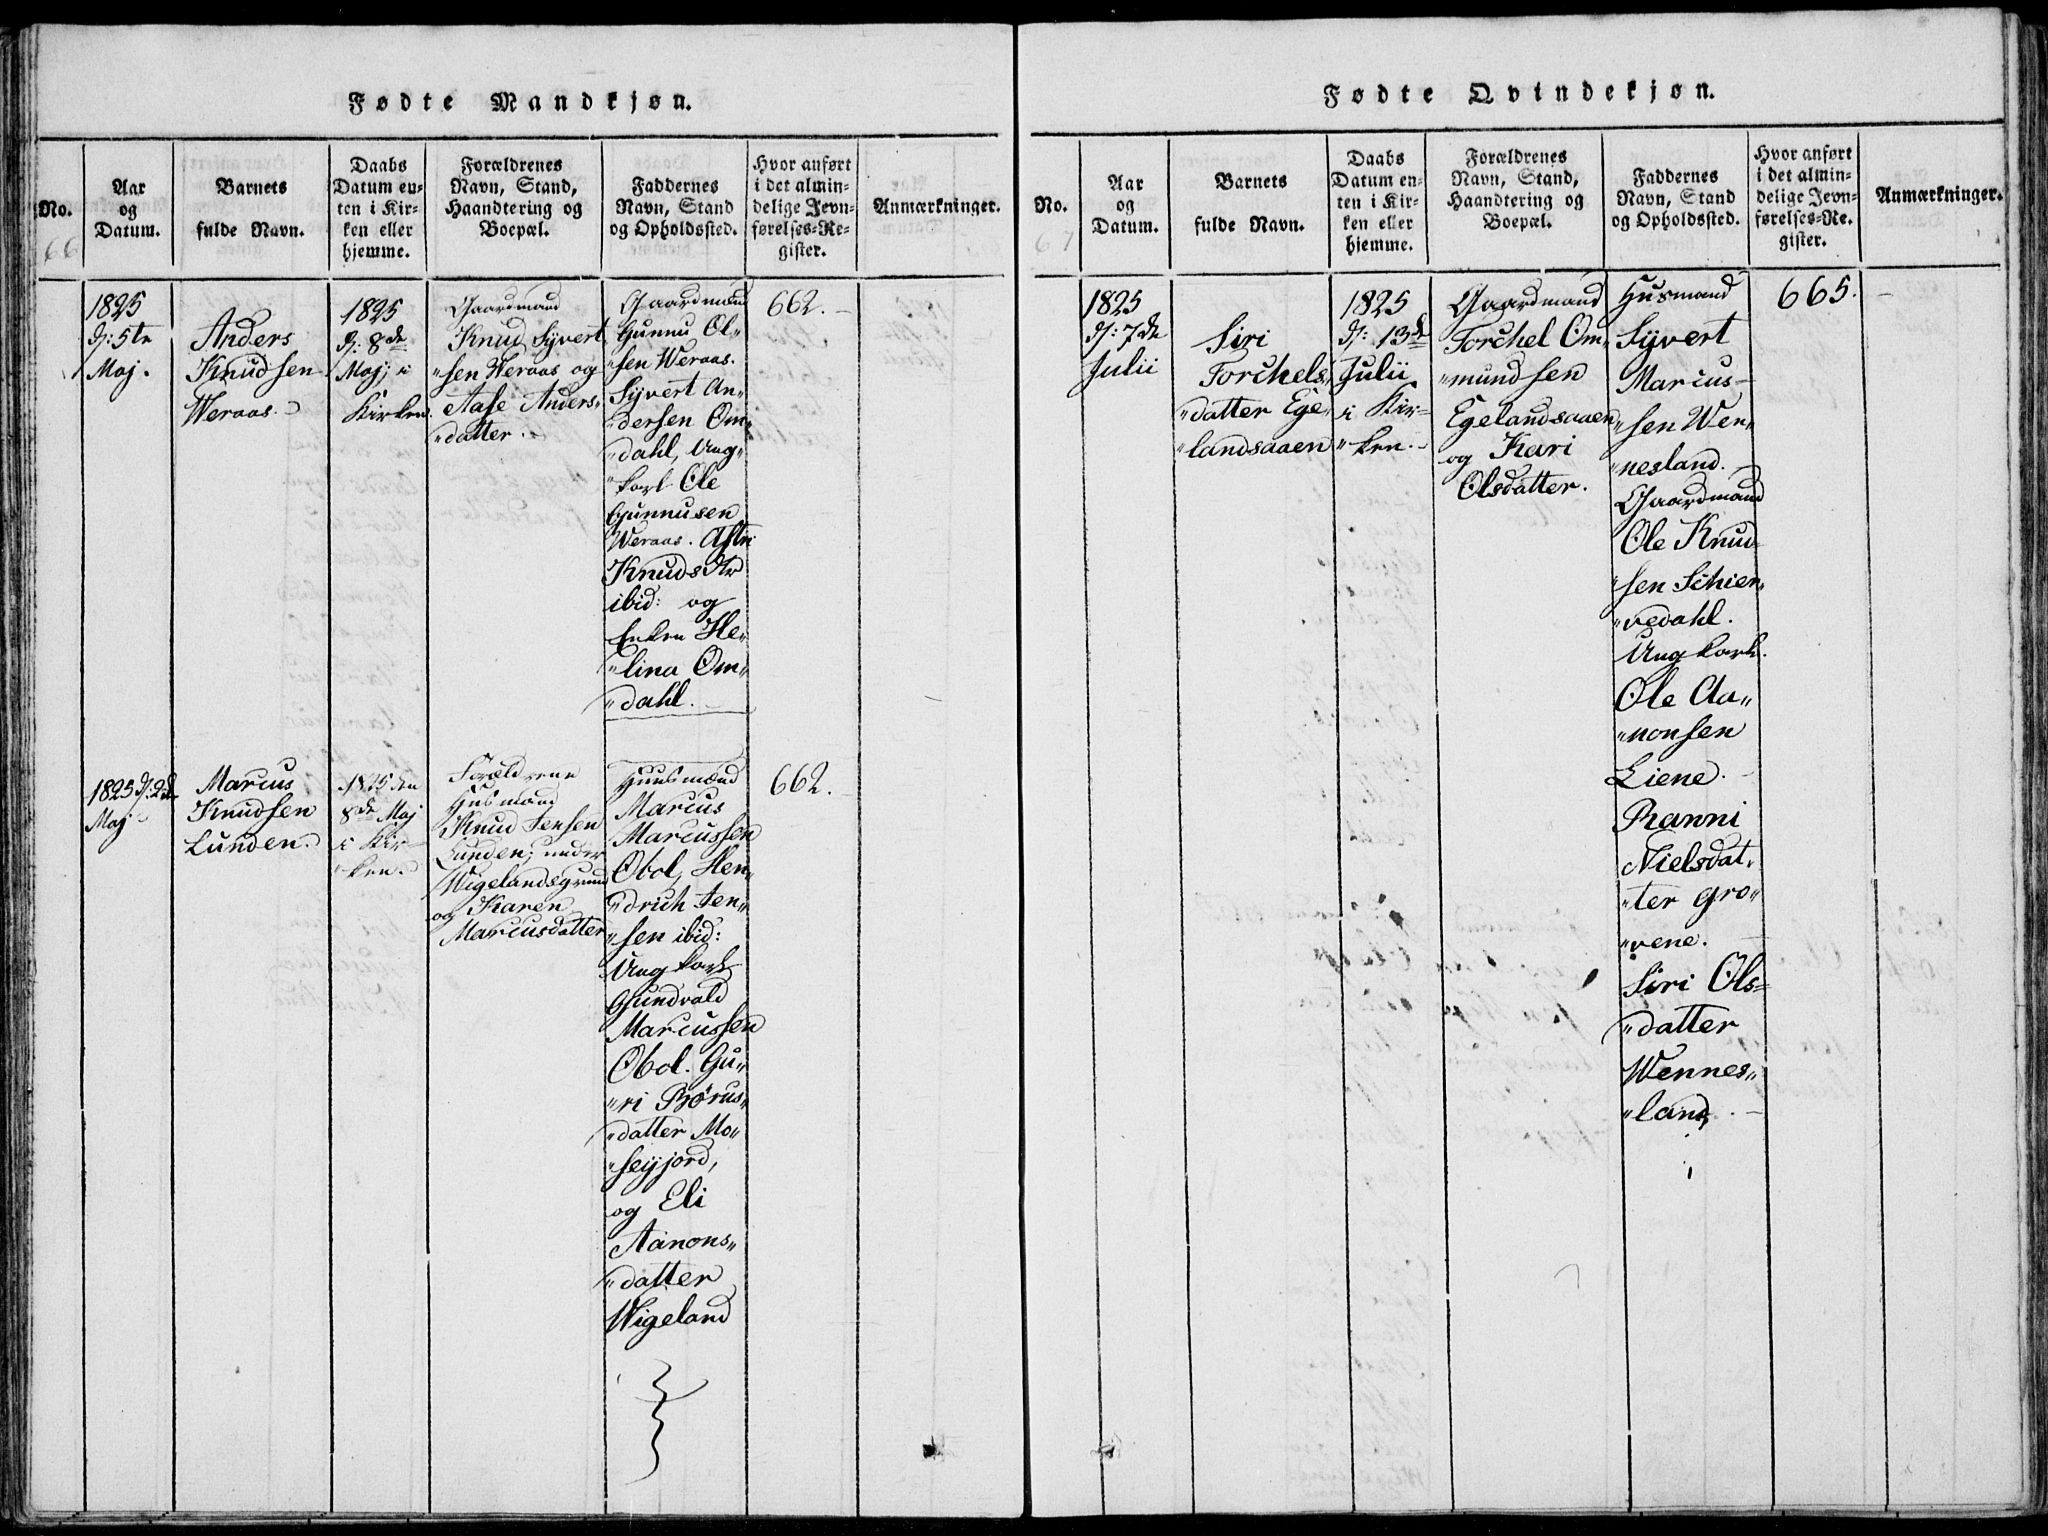 Fødte Mandkjøn.
No.
66
Aar
og
Datum.
Barnets
fulde Navn.
Daabs
Datum en-
ten i Kir-
ken eller
hjemme.
Forældrenes
Navn, Stand,
Haandtering og
Boepæl.
Faddernes
Navn, Stand
og Opholdssted.
Hvor anført
i det almin-
delige Jevn-
førelses-Re-
gister.
Anmærkninger.
1825
d: 5te
Maj.
Anders
Knudsen
Weraas.
1825
d: 8de
Maj; i
Kirken.
Gaardmand
Knud Syvert
"sen Weraas og
Aase Anders"
"datter.
Gaardmænd
Gunnu Ol"
"sen Weraas.
Syvert An"
"dersen Om"
"dahl, Ung"
"karl Ole
Gunnusen
Weraas. Astri
Knuds dtr
ibid: og
Enken He"
"lina Om"
"dahl.
662.
1825 d: 2de
Maj
Marcus
Knudsen
Lunden.
1825 den
8de Maj
i Kir-
"ken.
Forældrene
Husmand
Knud Jensen
Lunden; under
Wigelandsgrund
og Karen
Marcusdatter
Huusmænd
Marcus
Marcussen
Obol, Hen"
"drich Jen"
"sen ibid:
Ung karl
Gundvald
Marcussen
Obol. Gu"
"ri Børus"
"datter Mo"
"seyjord,
og Eli
Aanons"
"datter
Wigeland
662.
Fødte Qvindekjøn.
No.
67
Aar
og
Datum.
Barnets
fulde Navn.
Daabs
Datum en-
ten i Kir-
ken eller
hjemme.
Forældrenes
Navn, Stand,
Haandtering og
Boepæl.
Faddernes
Navn, Stand
og Opholdssted.
Hvor anført
i det almin-
delige Jevn-
førelses-Re-
gister.
Anmærkninger.
1825
d: 7de
Julii
Siri
Torchels"
"datter Ege"
"landsaaen
1825
d: 13de
Julii
i Kir-
"ken.
Gaardmand
Torchel Om"
"mundsen
Egelandsaaen
og Kari
Olsdatter.
Husmand
Syvert
Marcus-
"sen Wen"
"nesland.
Gaardmand
Ole Knud-
"sen Schier"
"vedahl.
Ung karl.
Ole Aa"
"nonsen
Liene.
Ranni
Nielsdat"
"ter Gro"
"vene.
Siri Ols-
"datter
Wennes"
"land.
665.